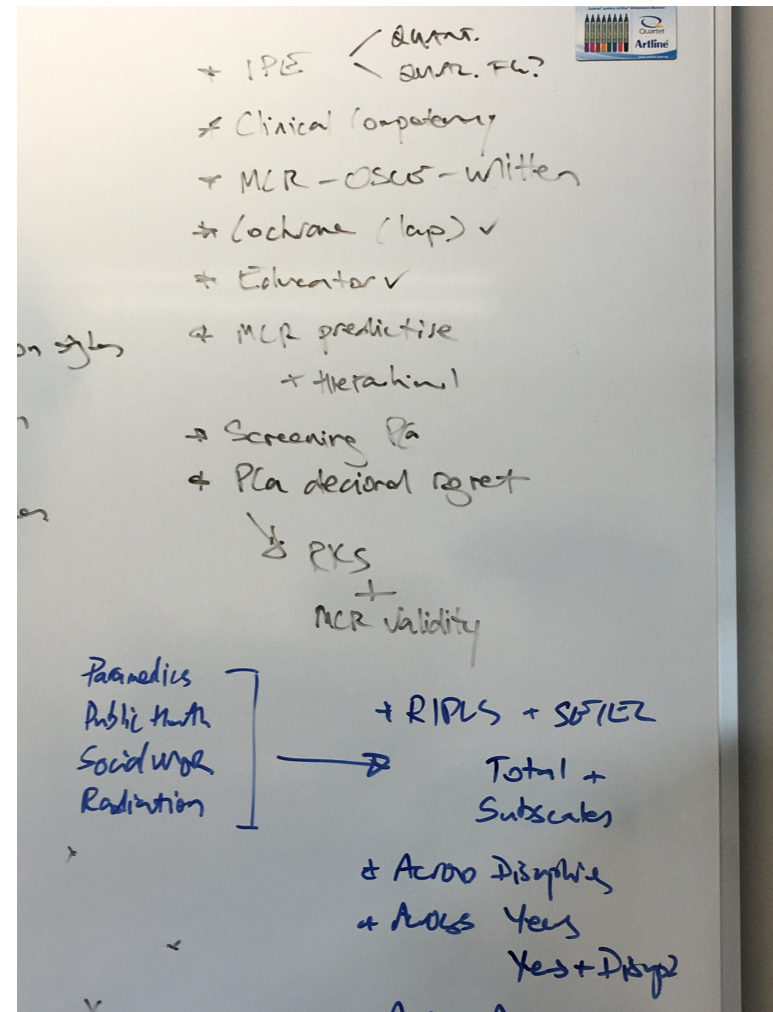 Quartet
Artline
* IPE
QUANT.
QUAL. FG?
* Clinical Competency
* MCR - OSCE - written
* Cochrane (lap) ✓
* Educator ✓
on styles
* MCR predictive
+ Hierachinal
* Screening PCa
* PCa decional regret
PKS
+
MCR validity
Paramedics
Public Health
Social Work
Radiation
* RIPLS +
Total +
Subscales
* Across Disciplines
* Across Years